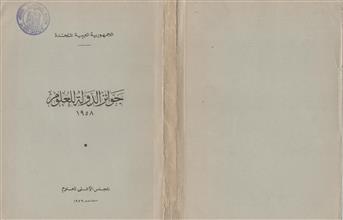 الجمهورية العربية المتحدة
جوائز الدولة للعلوم
١٩٥٨
المجلس الأعلى للعلوم